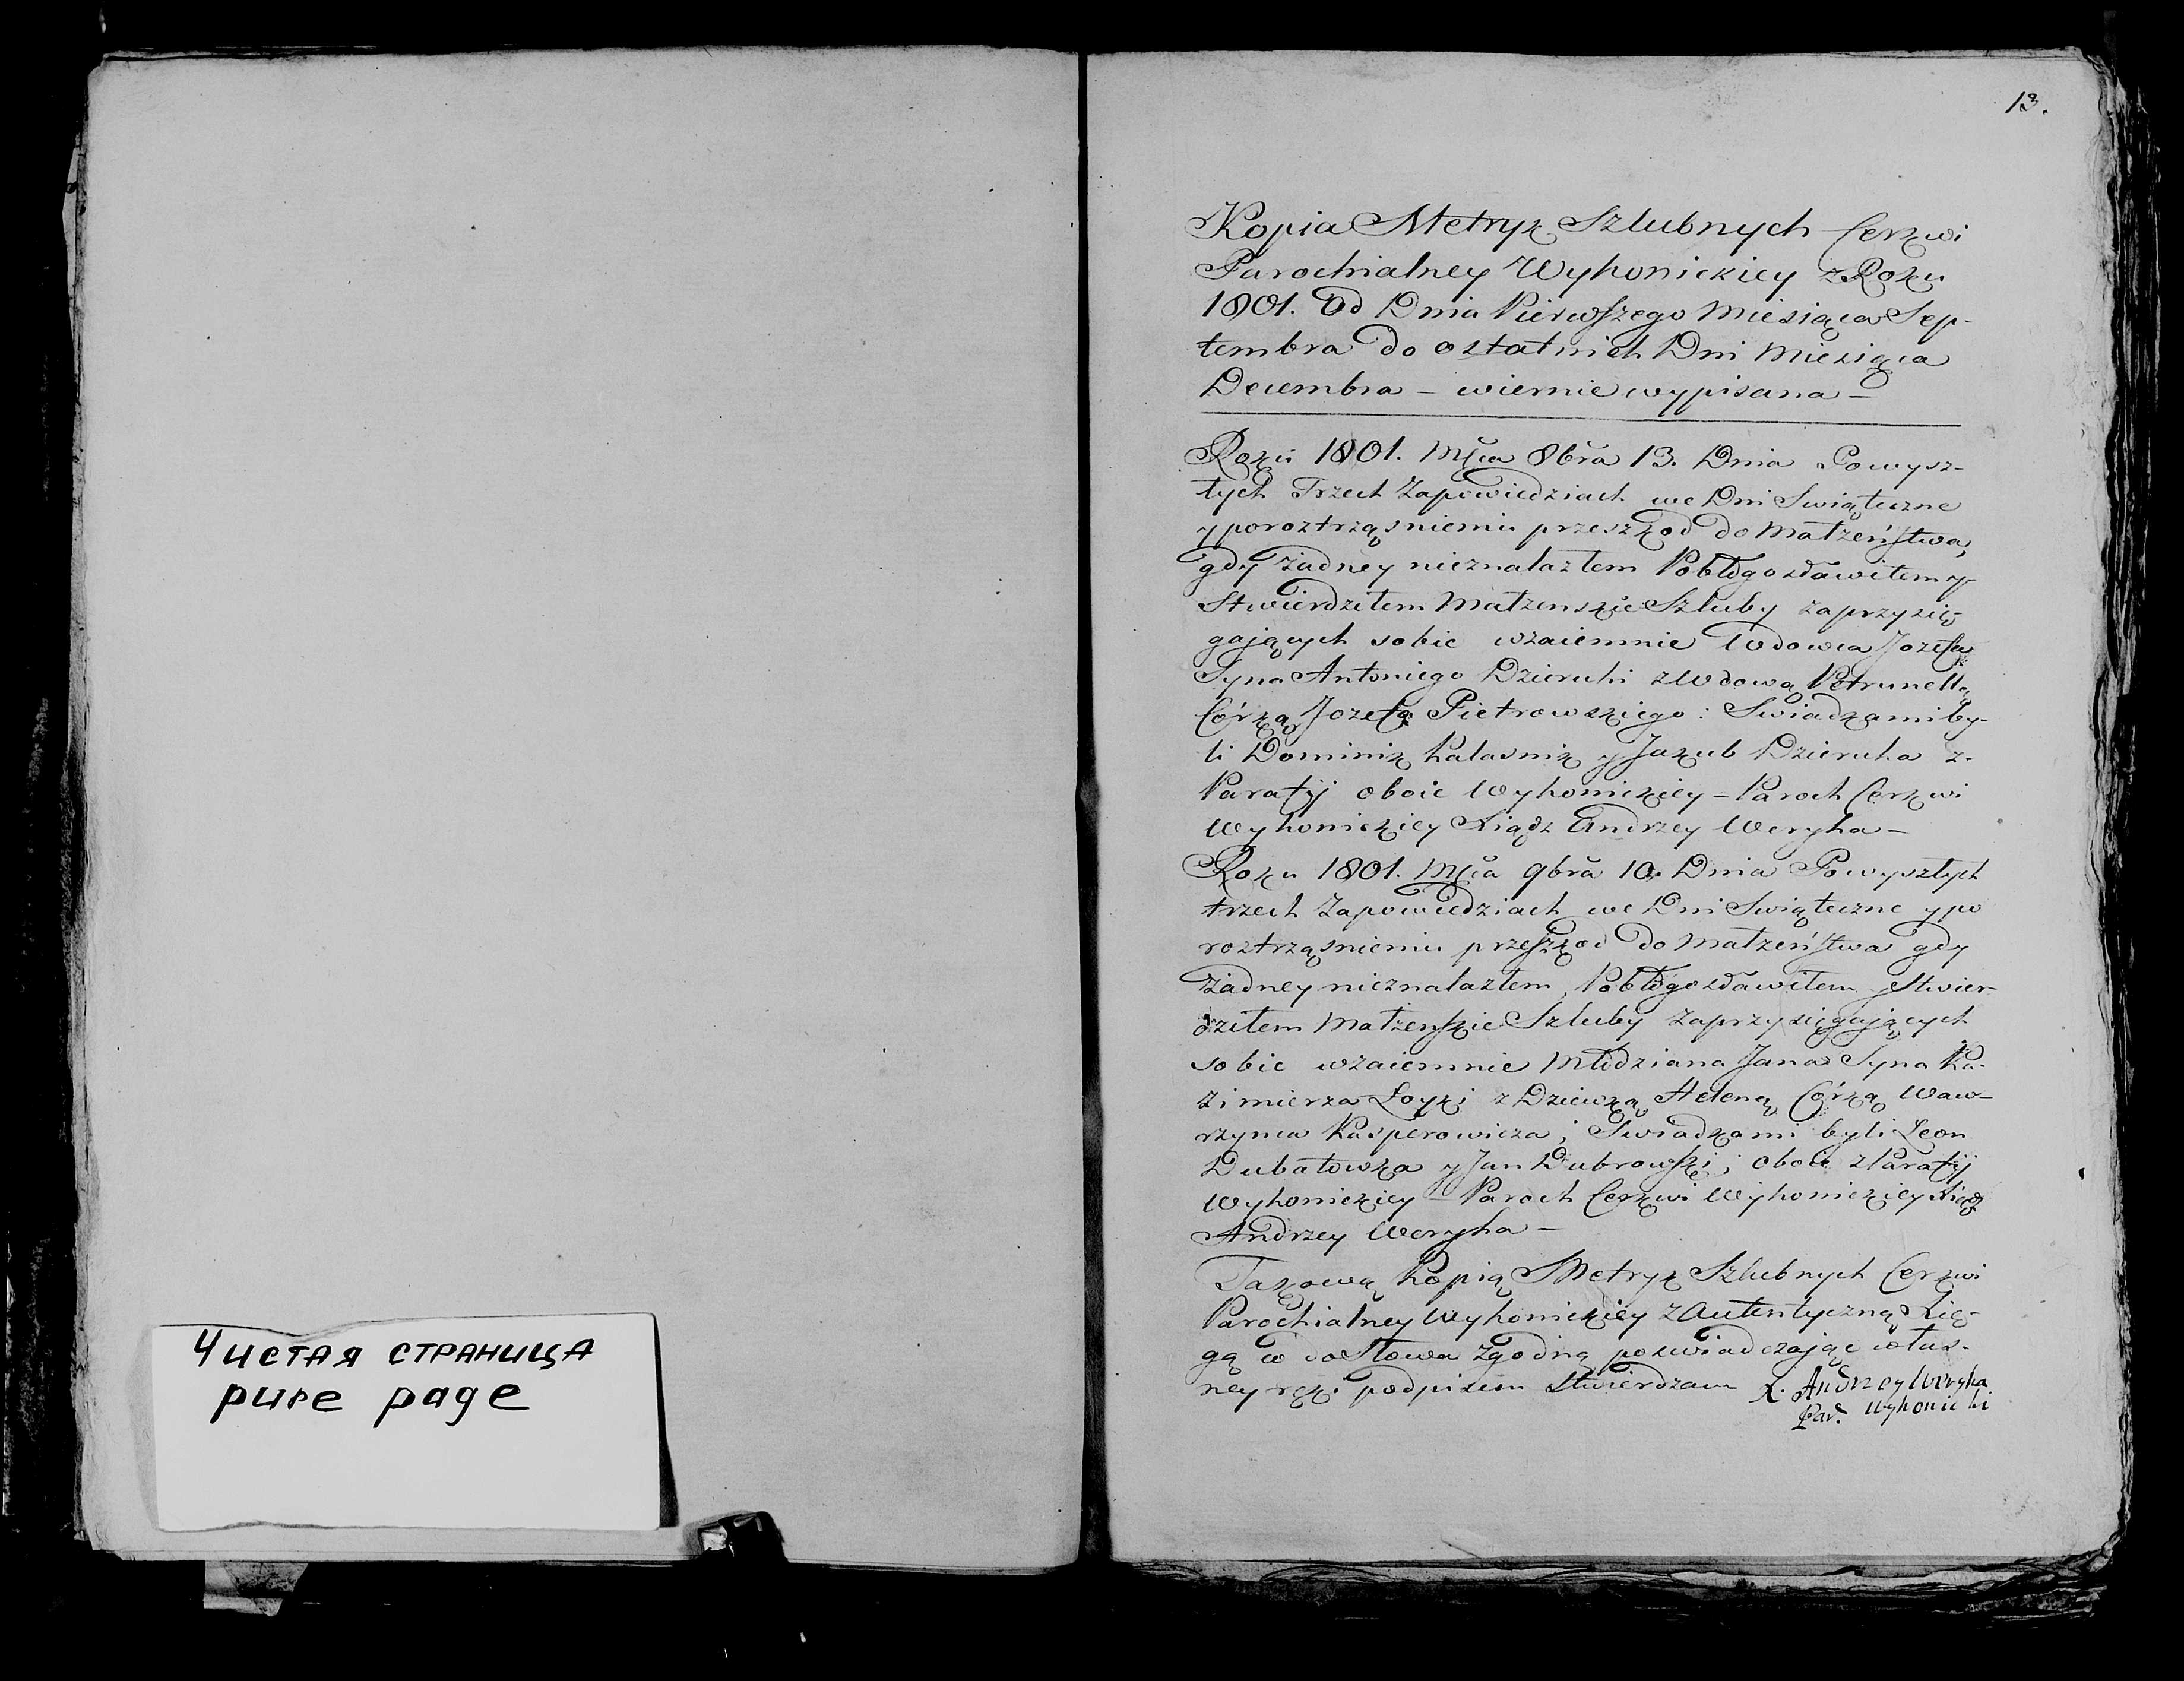 13.
Kopia Metryk Szlubnych Cerkwi
Parochialney Wyhonickiey z Roku
1801. Od Dnia Pierwszego Miesiąca Sep-
tembra do ostatnich Dni Miesiąca
Decembra – wiernie wypisana –
Roku 1801. Mca 8bra 13. Dnia Po wysz-
łych Trzech Zapowiedziach we Dni Swiąteczne
y po roztrząsnieniu przeszkod do Małżeństwa,
gdy żadney nieznalazłem Pobłogosławiłem y
Stwierdziłem Małżenskie Szluby zaprzysię-
gających sobie wzaiemnie Wdowca Jozefa
Syna Antoniego Dzieruhi z Wdową Petrunellą
Córką Jozefa Pietrowskiego: Swiadkami by-
li Dominik Kalasnik y Jakub Dzieruha z
Parafij oboie Wyhonickiey – Paroch Cerkwi
Wyhonickiey Xiądz Andrzey Weryha –
Roku 1801. Mca 9bra 10. Dnia Po wyszłych
trzech Zapowiedziach we Dni Swiąteczne y po
roztrząsnieniu przeszkod do Małżeństwa gdy
żadney nieznalazłem, Pobłogosławiłem y Stwier-
dziłem Małżenskie Szluby zaprzysięgających
sobie wzaiemnie Młodziana Jana Syna Ka-
zimierza Łoyki z Dziewką Heleną Córką Waw-
rzynca Kasperowicza; Swiadkami byli Leon
Dubatowka y Jan Dubrowski; oboie z Parafij
Wyhonickiey – Paroch Cerkwi Wyhonickiey Xiądz
Andrzey Weryha –
Takową Kopią Metryk Szlubnych Cerkwi
Parochialney Wyhonickiey z Autentyczną Xię-
gą co do Słowa zgodną poswiadczając włas-
ney ręki podpisem Stwierdzam X. Andrzey Weryha
Par. Wyhonicki
Чистая страница
pure page